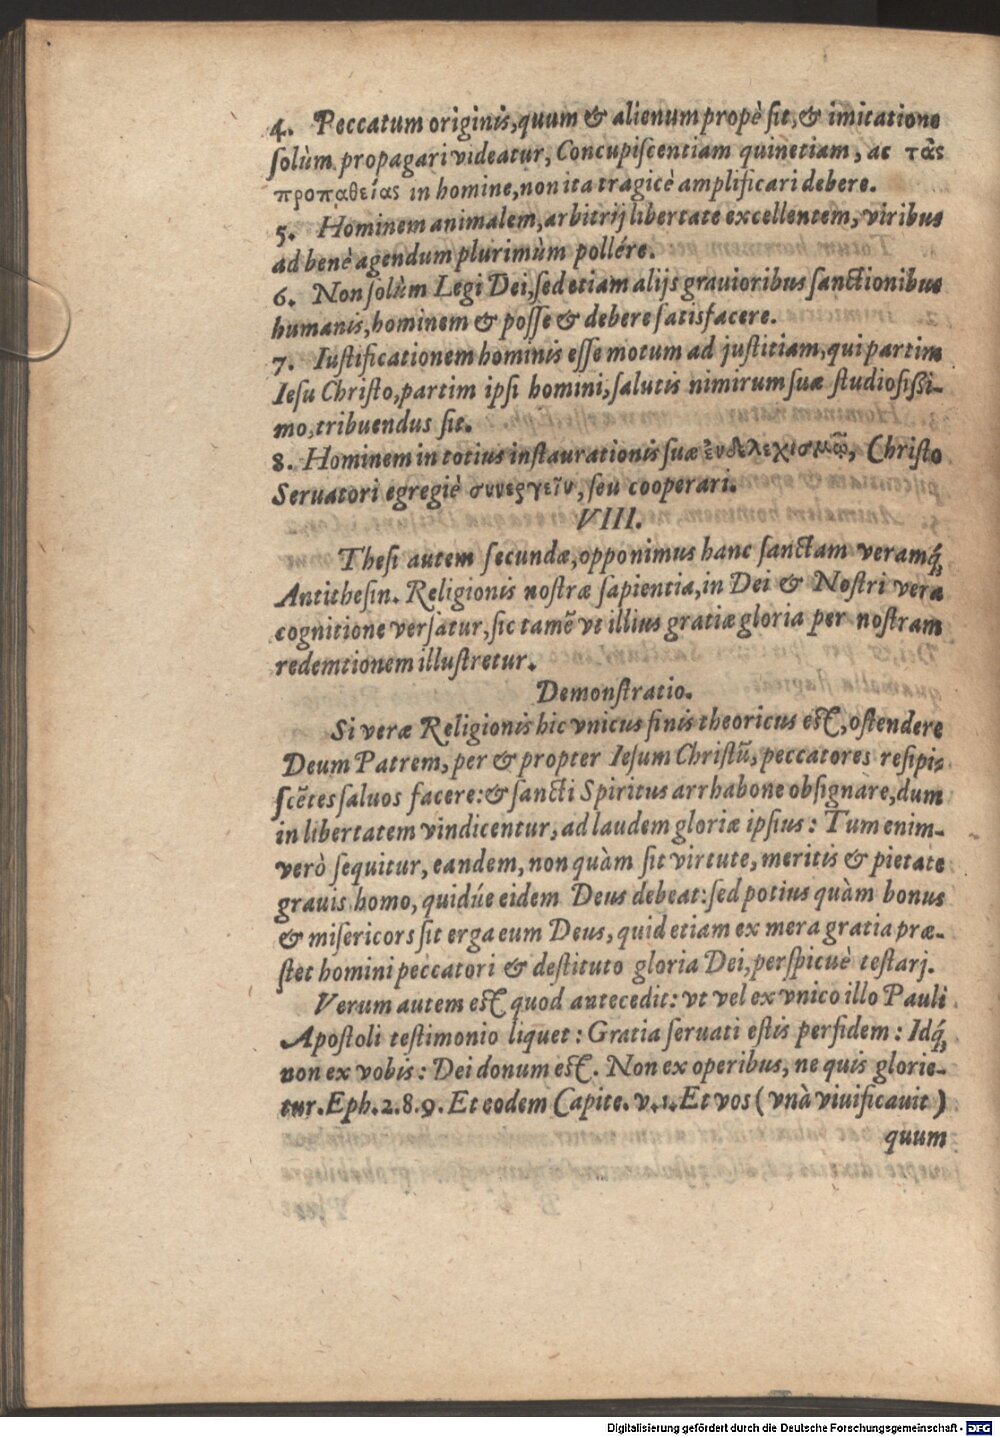 4. Peccatum originis, quum & alienum propè ſit, & imitatione
ſolùm propagari videatur, Concupiſcentiam quinetiam, ac τὰς
προπαθείας in homine, non ita tragicè amplificari debere.
5. Hominem animalem, arbitrij libertate excellentem, viribus
ad benè agendum plurimùm pollére.
6. Non ſolùm Legi Dei, ſed etiam alijs grauioribus ſanctionibus
humanis, hominem & poſſe & debere ſatisfacere.
7. Iuſtificationem hominis eſſe motum ad juſtitiam, qui partim
Ieſu Chriſto, partim ipſi homini, ſalutis nimirum ſuæ ſtudioſißi-
mo, tribuendus ſit.
8. Hominem in totius inſtaurationis ſuæ ἐνδελεχισμῷ, Chriſto
Seruatori egregiè συνεργεῖν, ſeu cooperari.
VIII.
Theſi autem ſecundæ, opponimus hanc ſanctam veramq́;
Antitheſin. Religionis noſtræ ſapientia, in Dei & Noſtri vera
cognitione verſatur, ſic tamē vt illius gratiæ gloria per noſtram
redemtionem illuſtretur.
Demonſtratio.
Si veræ Religionis hic vnicus finis theoricus eſt, oſtendere
Deum Patrem, per & propter Ieſum Chriſtū, peccatores reſipi-
ſcētes ſaluos facere: & ſancti Spiritus arrhabone obſignare, dum
in libertatem vindicentur, ad laudem gloriæ ipſius: Tum enim-
verò ſequitur, eandem, non quàm ſit virtute, meritis & pietate
grauis homo, quidúe eidem Deus debeat: ſed potius quàm bonus
& miſericors ſit erga eum Deus, quid etiam ex mera gratia præ-
ſtet homini peccatori & deſtituto gloria Dei, perſpicuè teſtari.
Verum autem eſt quod antecedit: vt vel ex vnico illo Pauli
Apoſtoli teſtimonio liquet: Gratia ſeruati eſtis per fidem: Idq́;
non ex vobis: Dei donum eſt. Non ex operibus, ne quis glorie-
tur. Eph. 2. 8. 9. Et eodem Capite. v. 1. Et vos (vnà viuificauit)
quum
Digitalisierung gefördert durch die Deutsche Forschungsgemeinschaft - DFG